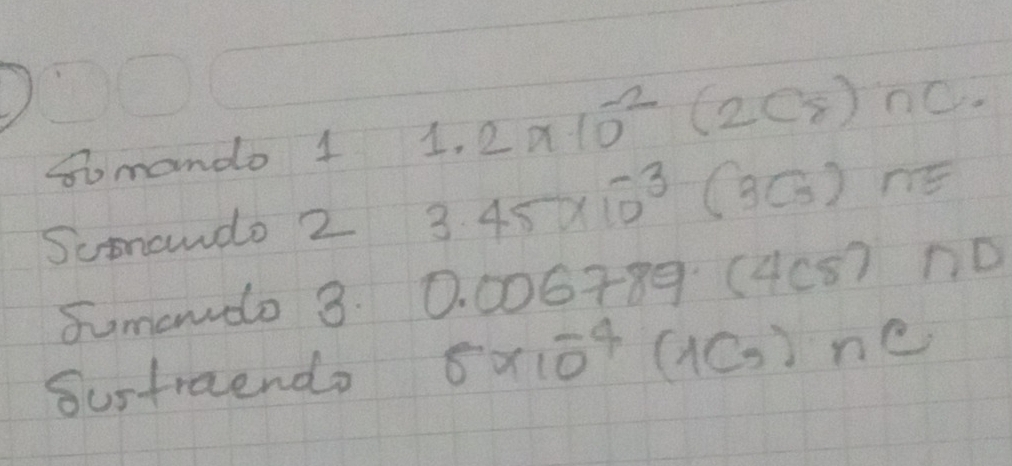 Sumando 1 1.2x10⁻² (2Cs) nC.
Sumando 2 3.45x10⁻³ (3Cs) nE
Sumando 3. 0.006789. (4CS) nD
Sustraendo 5x10⁻⁴ (1Cs) nC